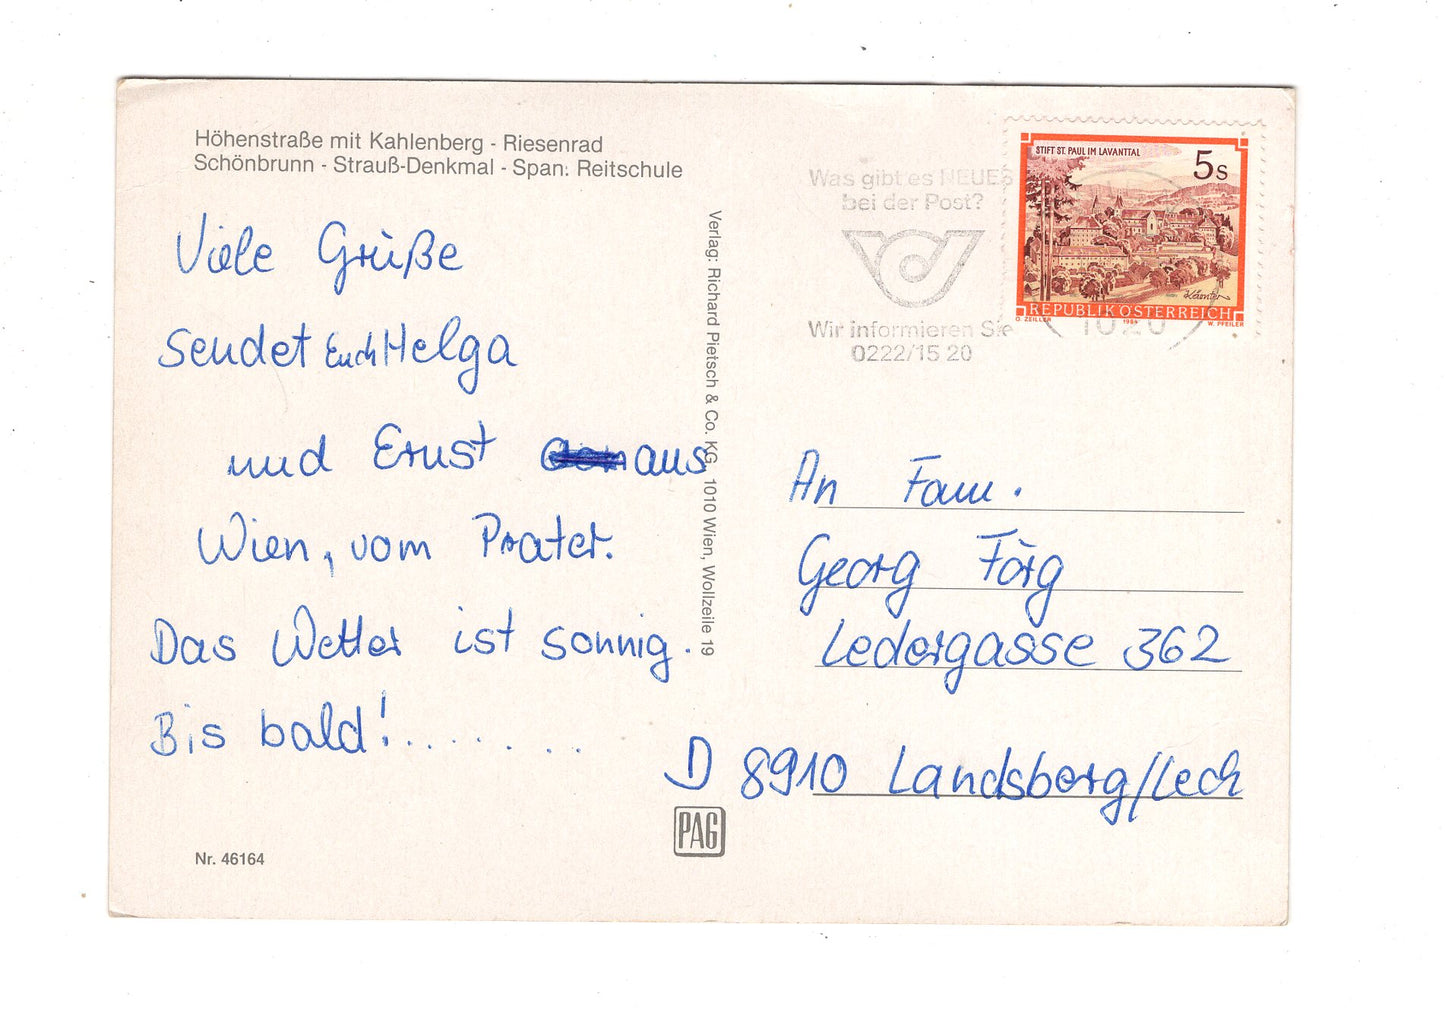 Höhenstraße mit Kahlenberg - Riesenrad
Schönbrunn - Strauß-Denkmal - Span. Reitschule
Viele Grüße
sendet Euch Helga
und Ernst aus
Wien, vom Prater.
Das Wetter ist sonnig.
Bis bald!.........
Nr. 46164
Verlag: Richard Pietsch & Co. KG, 1010 Wien, Wollzeile 19
PAG
Was gibt es NEUES
bei der Post?
Wir informieren Sie
0222/15 20
STIFT ST. PAUL IM LAVANTTAL
5s
Kärnten
REPUBLIK ÖSTERREICH
O. ZEILLER 1984 W. PFEILER
1020
An Fam.
Georg Förg
Ledergasse 362
D 8910 Landsberg/Lech